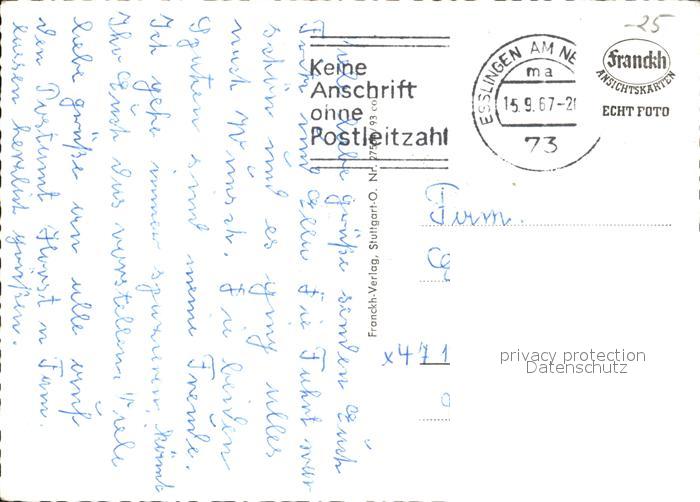 Viele liebe grüße senden Euch
Fam und Ella die Fahrt war
schön und es ging alles
nach Wunsch. die beiden
sind meine Freude.
Ich gehe immer spazieren, könnt
Ihr Euch das vorstellen. Viele
liebe grüße an alle auch
den Postamt Horst u Fam.
lassen herzlich grüßen.
Keine
Anschrift
ohne
Postleitzahl
ESSLINGEN AM NE
ma
15.9.67-21
73
-25
Franckh
ANSICHTSKARTEN
ECHT FOTO
Franckh-Verlag, Stuttgart-O. Nr. 93 co
Fam.
x471
privacy protection
Datenschutz